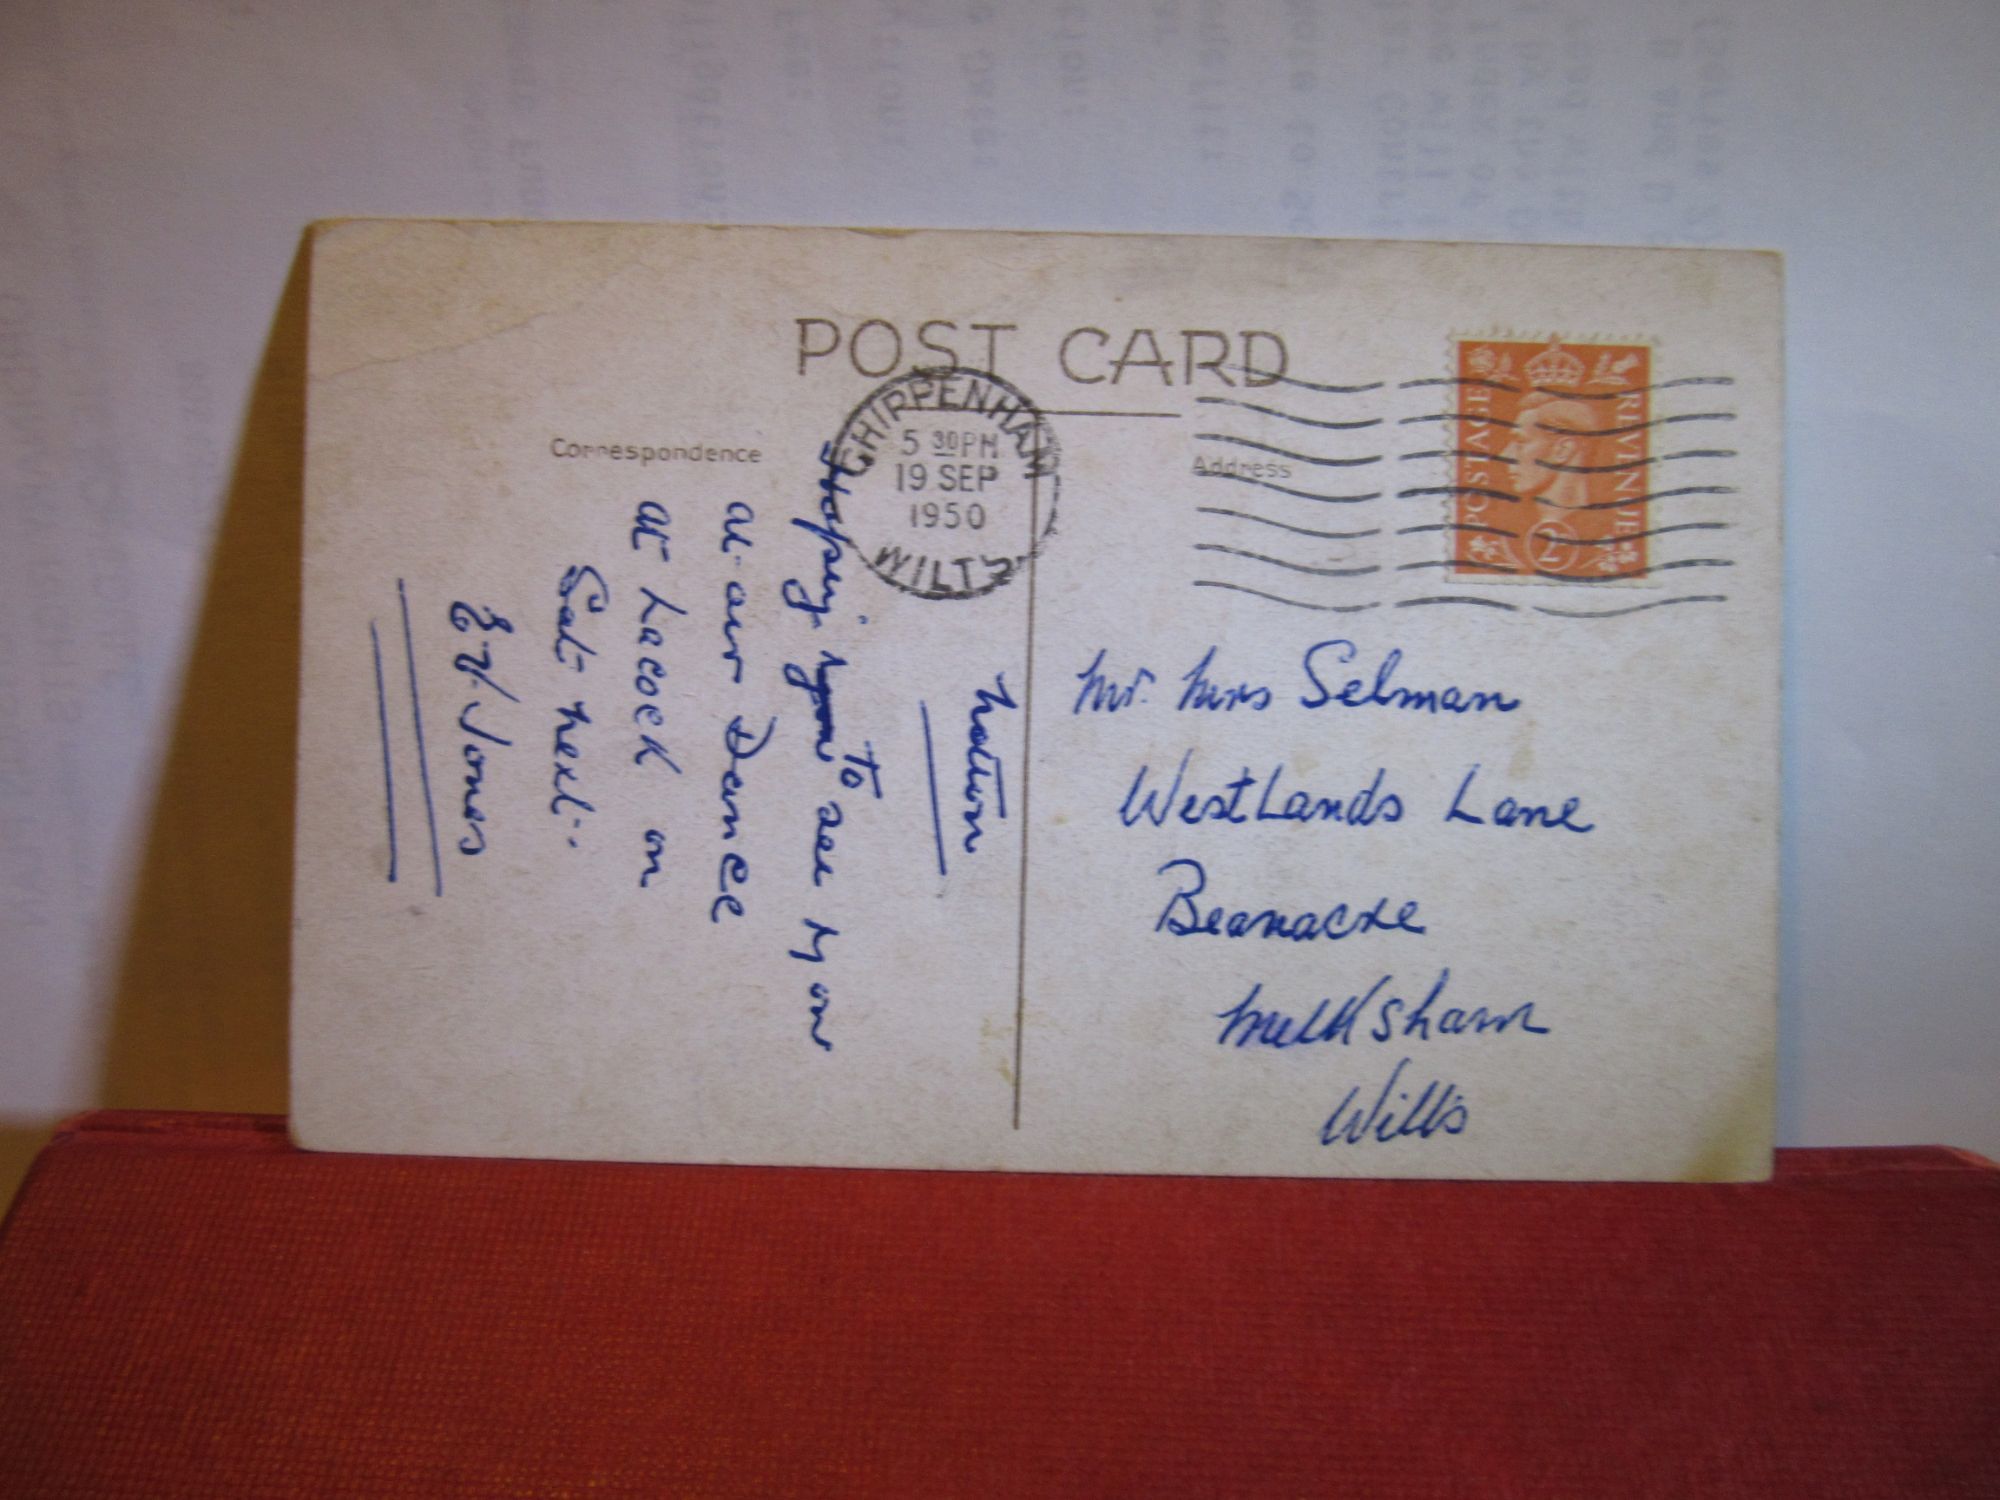 POST CARD
Correspondence
Address
CHIPPENHAM
5 30 PM
19 SEP
1950
WILTS
POSTAGE
REVENUE
2D
Notton
Hoping you to see you
at our Dance
at Lacock on
Sat next.
E.V. Jones
Mr. Mrs Selman
WestLands Lane
Beanacre
Melksham
Wilts